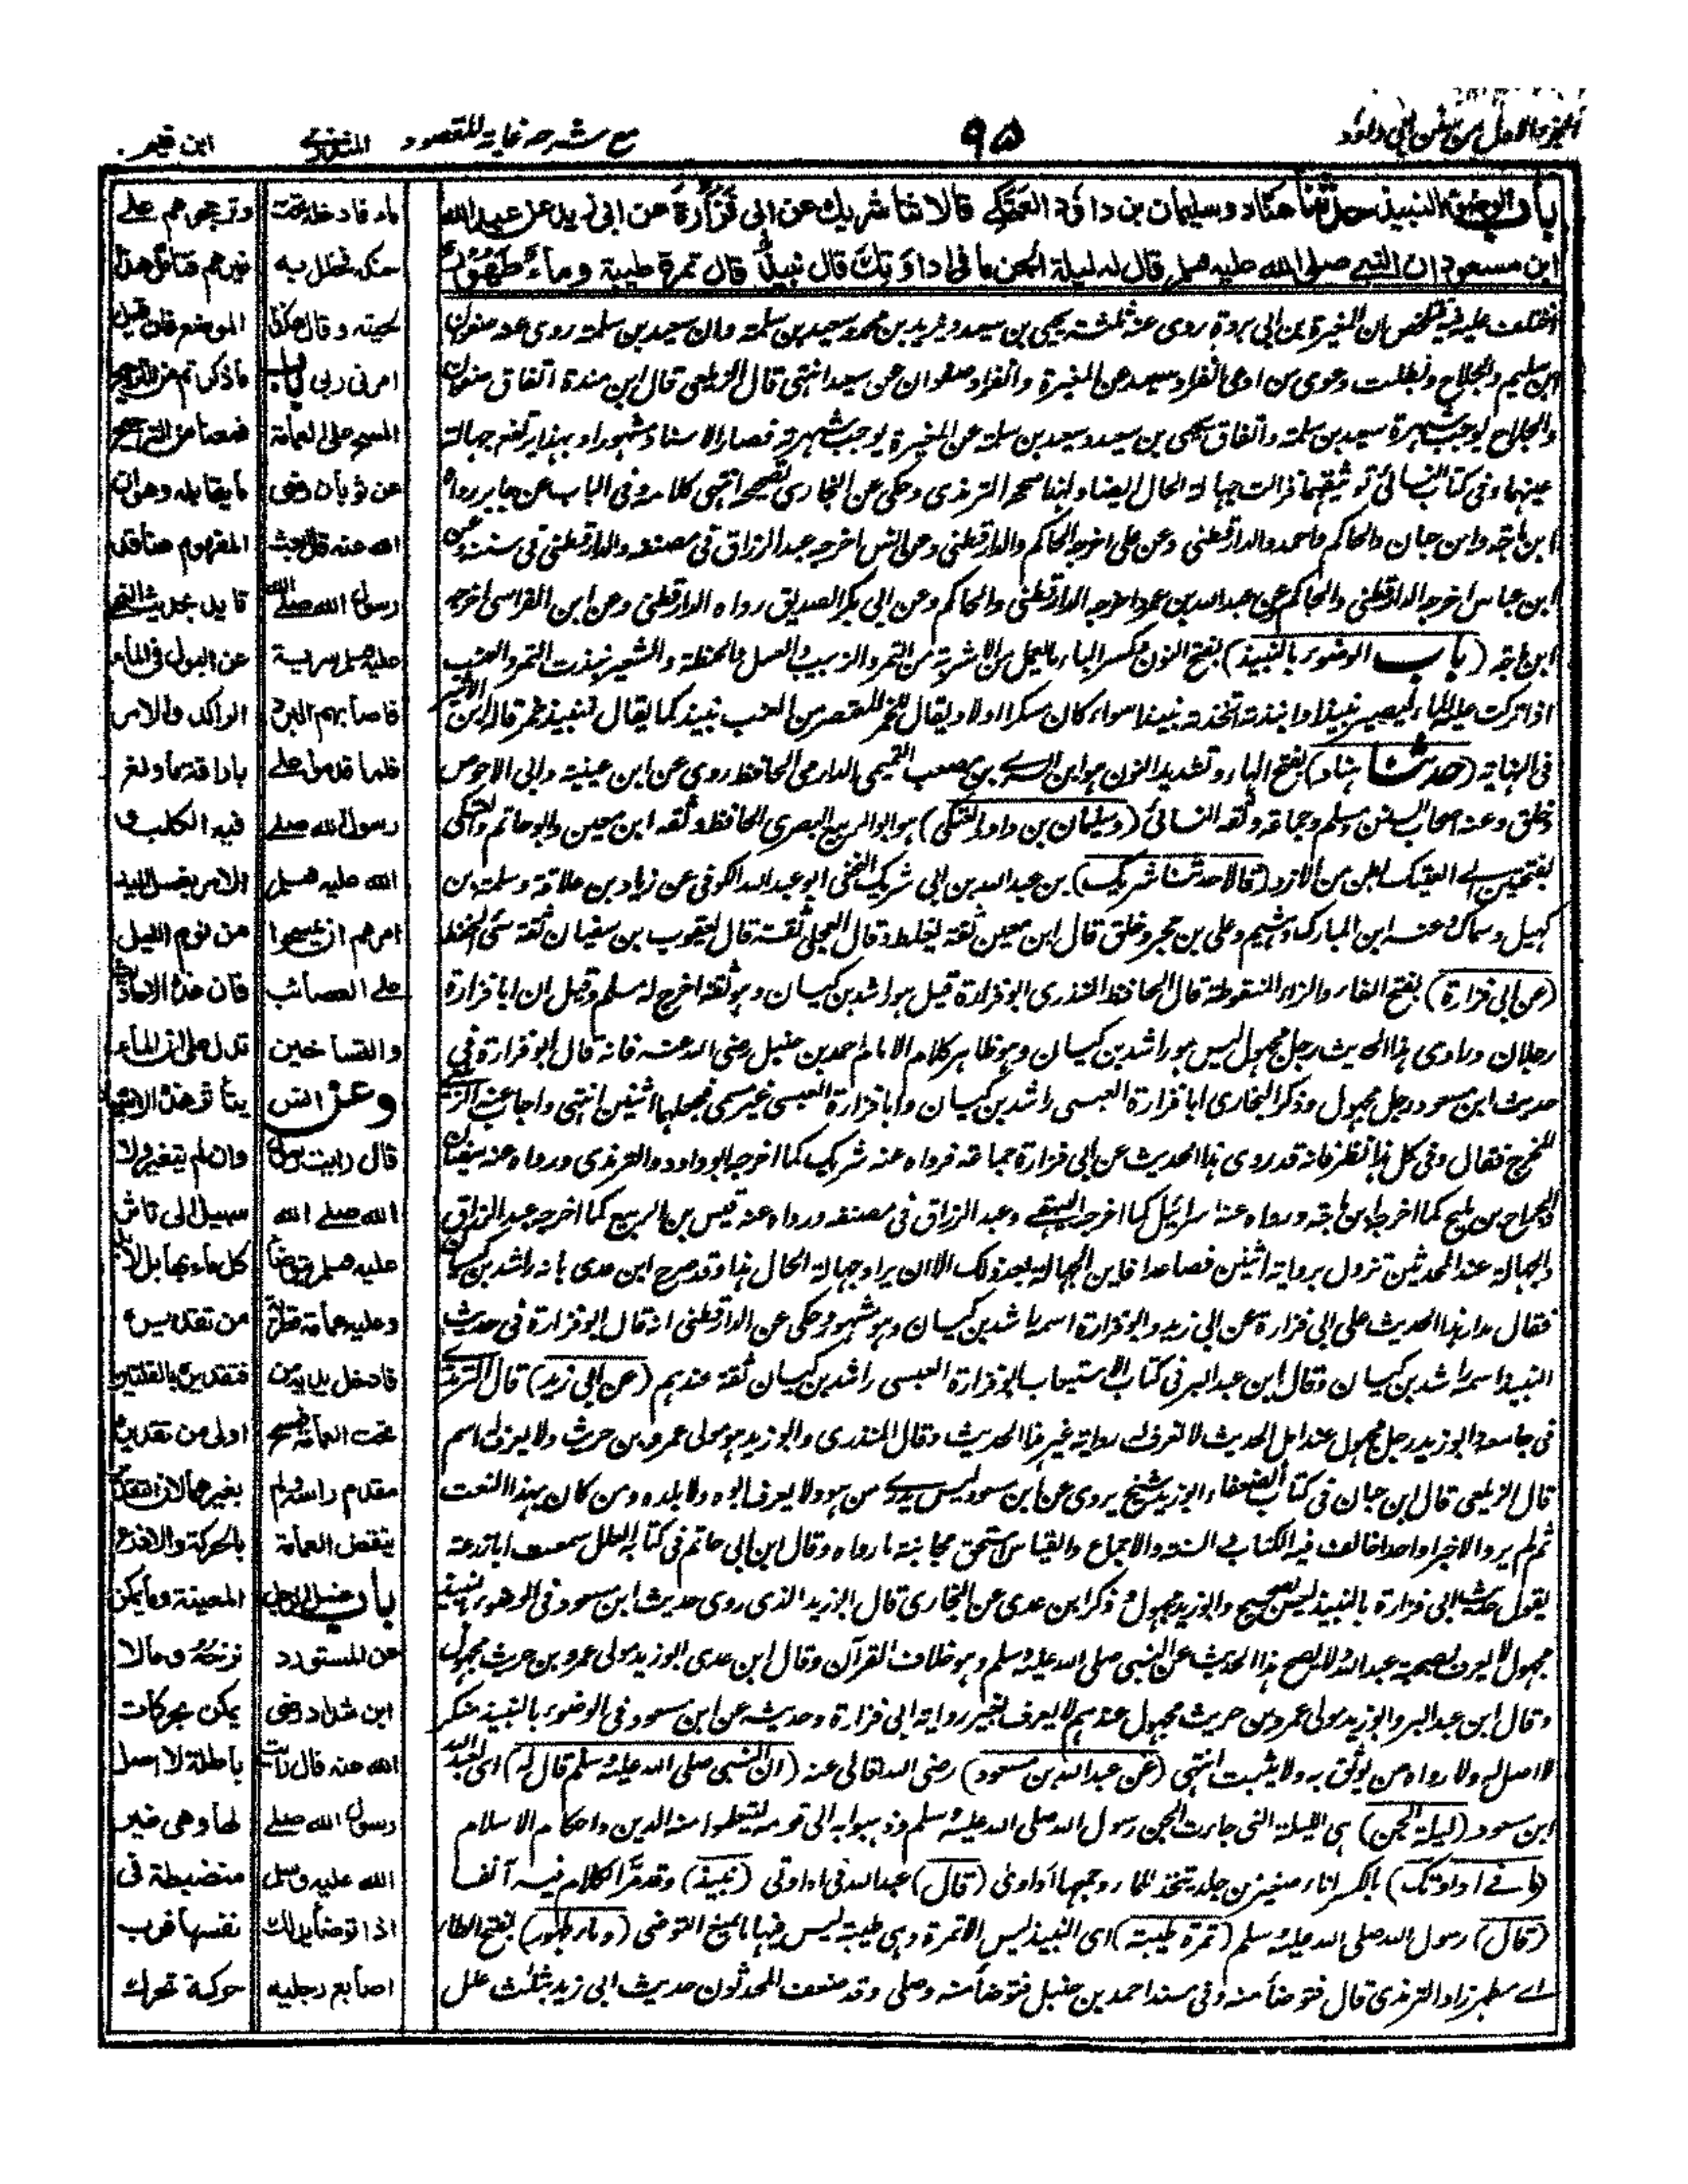 الجزء الاول من سنن ابی داؤد
٩٥
مع شرحه غاية المقصود
المنذری
ابن قيم
باب الوضوء بالنبيذ حدثنا هناد وسليمان بن داؤد العتكی قالا نا شريك عن ابی فزارة عن ابی زيد عن عبد الله
ابن مسعود ان النبی صلى الله عليه وسلم قال له ليلة الجن ما فی اداوتك قال نبيذ قال تمرة طيبة وماء طهور
اختلف عليه فيه تلخص ان المغيرة بن ابی بردة روی عنه ثلثة يحيى بن سعيد ويزيد بن محمد وسعيد بن سلمة وان سعيد بن سلمة روی عنه صفوان
ابن سليم والجلاح وبطلت دعوی من ادعی انفراد سعيد عن المغيرة وانفراد صفوان عن سعيد انتهی قال الزيلعی قال ابن مندة اتفاق صفوان
والجلاح يوجب شهرة سعيد بن سلمة واتفاق يحيى بن سعيد وسعيد بن سلمة عن المغيرة يوجب شهرته فصار الاسناد مشهورا وبهذا يرتفع جهالة
عينهما وفی كتاب النسائی توثيقهما فزالت جهالة الحال ايضا ولهذا صححه الترمذی وحكی عن البخاری تصحيحه انتهی كلامه وفی الباب عن جابر رواه
ابن ماجة وابن حبان والحاكم واحمد والدارقطنی وعن علی اخرجه الحاكم والدارقطنی وعن انس اخرجه عبد الرزاق فی مصنفه والدارقطنی فی سننه وعن
ابن عباس اخرجه الدارقطنی والحاكم وعن عبد الله بن عمرو اخرجه الدارقطنی والحاكم وعن ابی بكر الصديق رواه الدارقطنی وعن ابن الفراسی اخرجه
ابن ماجة (باب الوضوء بالنبيذ) بفتح النون وكسر الباء ما يعمل من الاشربة من التمر والزبيب والعسل والحنطة والشعير نبذت التمر والعنب
اذا تركت عليه الماء ليصير نبيذا وانبذته اتخذته نبيذا سواء كان مسكرا اولا ويقال للخمر المعتصر من العنب نبيذ كما يقال للنبيذ خمر قاله ابن الاثير
فی النهاية (حدثنا هناد) بفتح الهاء وتشديد النون هو ابن السری بن مصعب التميمی الدارمی الحافظ روی عن ابن عيينة وابی الاحوص
وخلق وعنه اصحاب السنن ومسلم وجماعة وثقه النسائی (وسليمان بن داود العتكی) هو ابو الربيع البصری الحافظ وثقه ابن معين وابو حاتم والعتكی
بفتحتين الى العتيك بطن من الازد (قالا حدثنا شريك) بن عبد الله بن ابی شريك النخعی ابو عبد الله الكوفی عن زياد بن علاقة وسلمة بن
كهيل وسماك وعنه ابن المبارك وهشيم وعلی بن حجر وخلق قال ابن معين ثقة يغلط وقال العجلی ثقة قال يعقوب بن سفيان ثقة سئ الحفظ
(عن ابی فزارة) بفتح الفاء والزاء المنقوطة قال الحافظ المنذری ابو فزارة قيل هو راشد بن كيسان وهو ثقة اخرج له مسلم وقيل ان ابا فزارة
رجلان وراوی هذا الحديث رجل مجهول ليس هو راشد بن كيسان وهو ظاهر كلام الامام احمد بن حنبل رضی الله عنه فانه قال ابو فزارة فی
حديث ابن مسعود رجل مجهول وذكر البخاری ابا فزارة العبسی راشد بن كيسان وابا فزارة العبسی غير مسمی فجعلهما اثنين انتهی واجاب عنه الزيلعی
المخرج فقال وفی كل هذا نظر فانه قد روی هذا الحديث عن ابی فزارة جماعة فرواه عنه شريك كما اخرجه ابو داود والترمذی ورواه عنه سفيان
والجراح بن مليح كما اخرجه ابن ماجة ورواه عنه اسرائيل كما اخرجه البيهقی وعبد الرزاق فی مصنفه ورواه عنه قيس بن الربيع كما اخرجه عبد الرزاق
والجهالة عند المحدثين تزول برواية اثنين فصاعدا فاين الجهالة بعد ذلك الا ان يراد جهالة الحال هذا وقد صرح ابن عدی بانه راشد بن كيسان
فقال مدار هذا الحديث علی ابی فزارة عن ابی زيد وابو فزارة اسمه راشد بن كيسان وهو مشهور وحكی عن الدارقطنی انه قال ابو فزارة فی حديث
النبيذ اسمه راشد بن كيسان وقال ابن عبد البر فی كتاب الاستيعاب ابو فزارة العبسی راشد بن كيسان ثقة عندهم (عن ابی زيد) قال الترمذی
فی جامعه ابو زيد رجل مجهول عند اهل الحديث لا تعرف له رواية غير هذا الحديث وقال المنذری وابو زيد هو مولی عمرو بن حريث ولا يعرف له اسم
قال الزيلعی قال ابن حبان فی كتاب الضعفاء ابو زيد شيخ يروی عن ابن مسعود ليس يدری من هو ولا يعرف ابوه ولا بلده ومن كان بهذا النعت
ثم لم يرو الا خبرا واحدا خالف فيه الكتاب والسنة والاجماع والقياس استحق مجانبة ما رواه وقال ابن ابی حاتم فی كتابه العلل سمعت ابا زرعة
يقول حديث ابی فزارة بالنبيذ ليس بصحيح وابو زيد مجهول وذكر ابن عدی عن البخاری قال ابو زيد الذی روی حديث ابن مسعود فی الوضوء بالنبيذ
مجهول لا يعرف بصحبة عبد الله ولا يصح هذا الحديث عن النبی صلی الله عليه وسلم وهو خلاف القرآن وقال ابن عدی ابو زيد مولی عمرو بن حريث مجهول
وقال ابن عبد البر وابو زيد مولی عمرو بن حريث مجهول عندهم لا يعرف بغير رواية ابی فزارة وحديثه عن ابن مسعود فی الوضوء بالنبيذ منكر
لا اصل له ولا رواه من يوثق به ولا يثبت انتهی (عن عبد الله بن مسعود) رضی الله تعالی عنه (ان النبی صلی الله عليه وسلم قال له) ای لعبد الله
ابن مسعود (ليلة الجن) هی الليلة التی جاءت الجن رسول الله صلی الله عليه وسلم وذهبوا به الی قومه ليتعلموا منه الدين واحكام الاسلام
(ما فی اداوتك) بالكسر اناء صغير من جلد يتخذ للماء وجمعها اداوی (قال) عبد الله فی اداوتی (نبيذ) وقد مر الكلام فيه آنفا
(قال) رسول الله صلی الله عليه وسلم (تمرة طيبة) ای النبيذ ليس الا تمرة وهی طيبة ليس فيها ما يمنع التوضی (وماء طهور) بفتح الطاء
ای مطهر زاد الترمذی قال فتوضأ منه وفی مسند احمد بن حنبل فتوضأ منه وصلی وقد ضعف المحدثون حديث ابی زيد بثلث علل
ماء فادخله تحت
حنكه فخلل به
لحيته وقال هكذا
امرنی ربی باب
المسح علی العمامة
عن ثوبان رضی
الله عنه قال بعث
رسول الله صلی الله
عليه وسلم سرية
فاصابهم البرد
فلما قدموا علی
رسول الله صلی
الله عليه وسلم
امرهم ان يمسحوا
علی العصائب
والتساخين
وعن انس
قال رايت رسول
الله صلی الله
عليه وسلم يتوضأ
وعليه عمامة قطرية
فادخل يده من
تحت العمامة فمسح
مقدم راسه ولم
ينقض العمامة
باب غسل الرجل
عن المستورد
ابن شداد رضی
الله عنه قال رأيت
رسول الله صلی
الله عليه وسلم
اذا توضأ يدلك
اصابع رجليه
وترجيحهم علی
غيرهم فتامل هذا
الموضع فان قيل
ما ذكرتم من الترجيح
فمعنا من الترجيح
ما يقابله وهو ان
المفهوم هنا قد
تايد بحديث النهی
عن البول فی الماء
الراكد والامر
باراقة ما ولغ
فيه الكلب و
الامر بغسل اليد
من نوم الليل
فان هذه الاحاديث
تدل علی ان الماء
يتأثر بهذه الاشياء
وان لم يتغير ولا
سبيل الی تاثر
كل ماء بها بل لا بد
من تقديره
فتقديره بالقلتين
اولی من تقديره
بغيرهما لان التقدير
بالحركة والاذرع
المعينة وما يمكن
نزحه وما لا
يمكن تقديرات
باطلة لا اصل
لها وهی غير
منضبطة فی
نفسها فرب
حركة تحرك